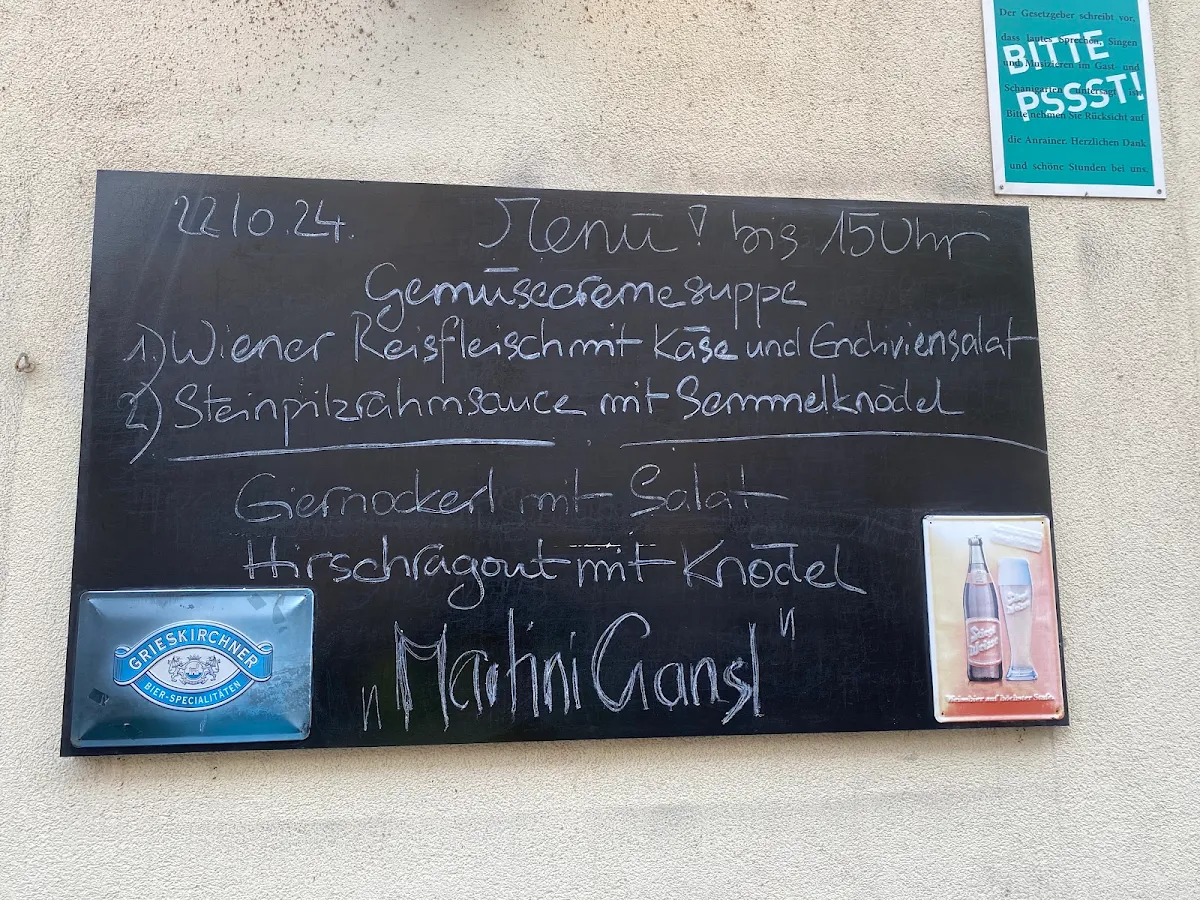 Der Gesetzgeber schreibt vor,
dass lautes Sprechen, Singen
und Musizieren im Gast- und
Schanigarten untersagt ist.
Bitte nehmen Sie Rücksicht auf
die Anrainer. Herzlichen Dank
und schöne Stunden bei uns.
BITTE
PSSST!
22/0.24. Menü! bis 15Uhr
Gemüsecremesuppe
1) Wiener Reisfleisch mit Käse und Endiviensalat
2) Steinpilzrahmsauce mit Semmelknödel
Eiernockerl mit Salat
Hirschragout mit Knödel
"Martini Gansl"
GRIESKIRCHNER
BIER-SPECIALITÄTEN
Stiegl
Weisse